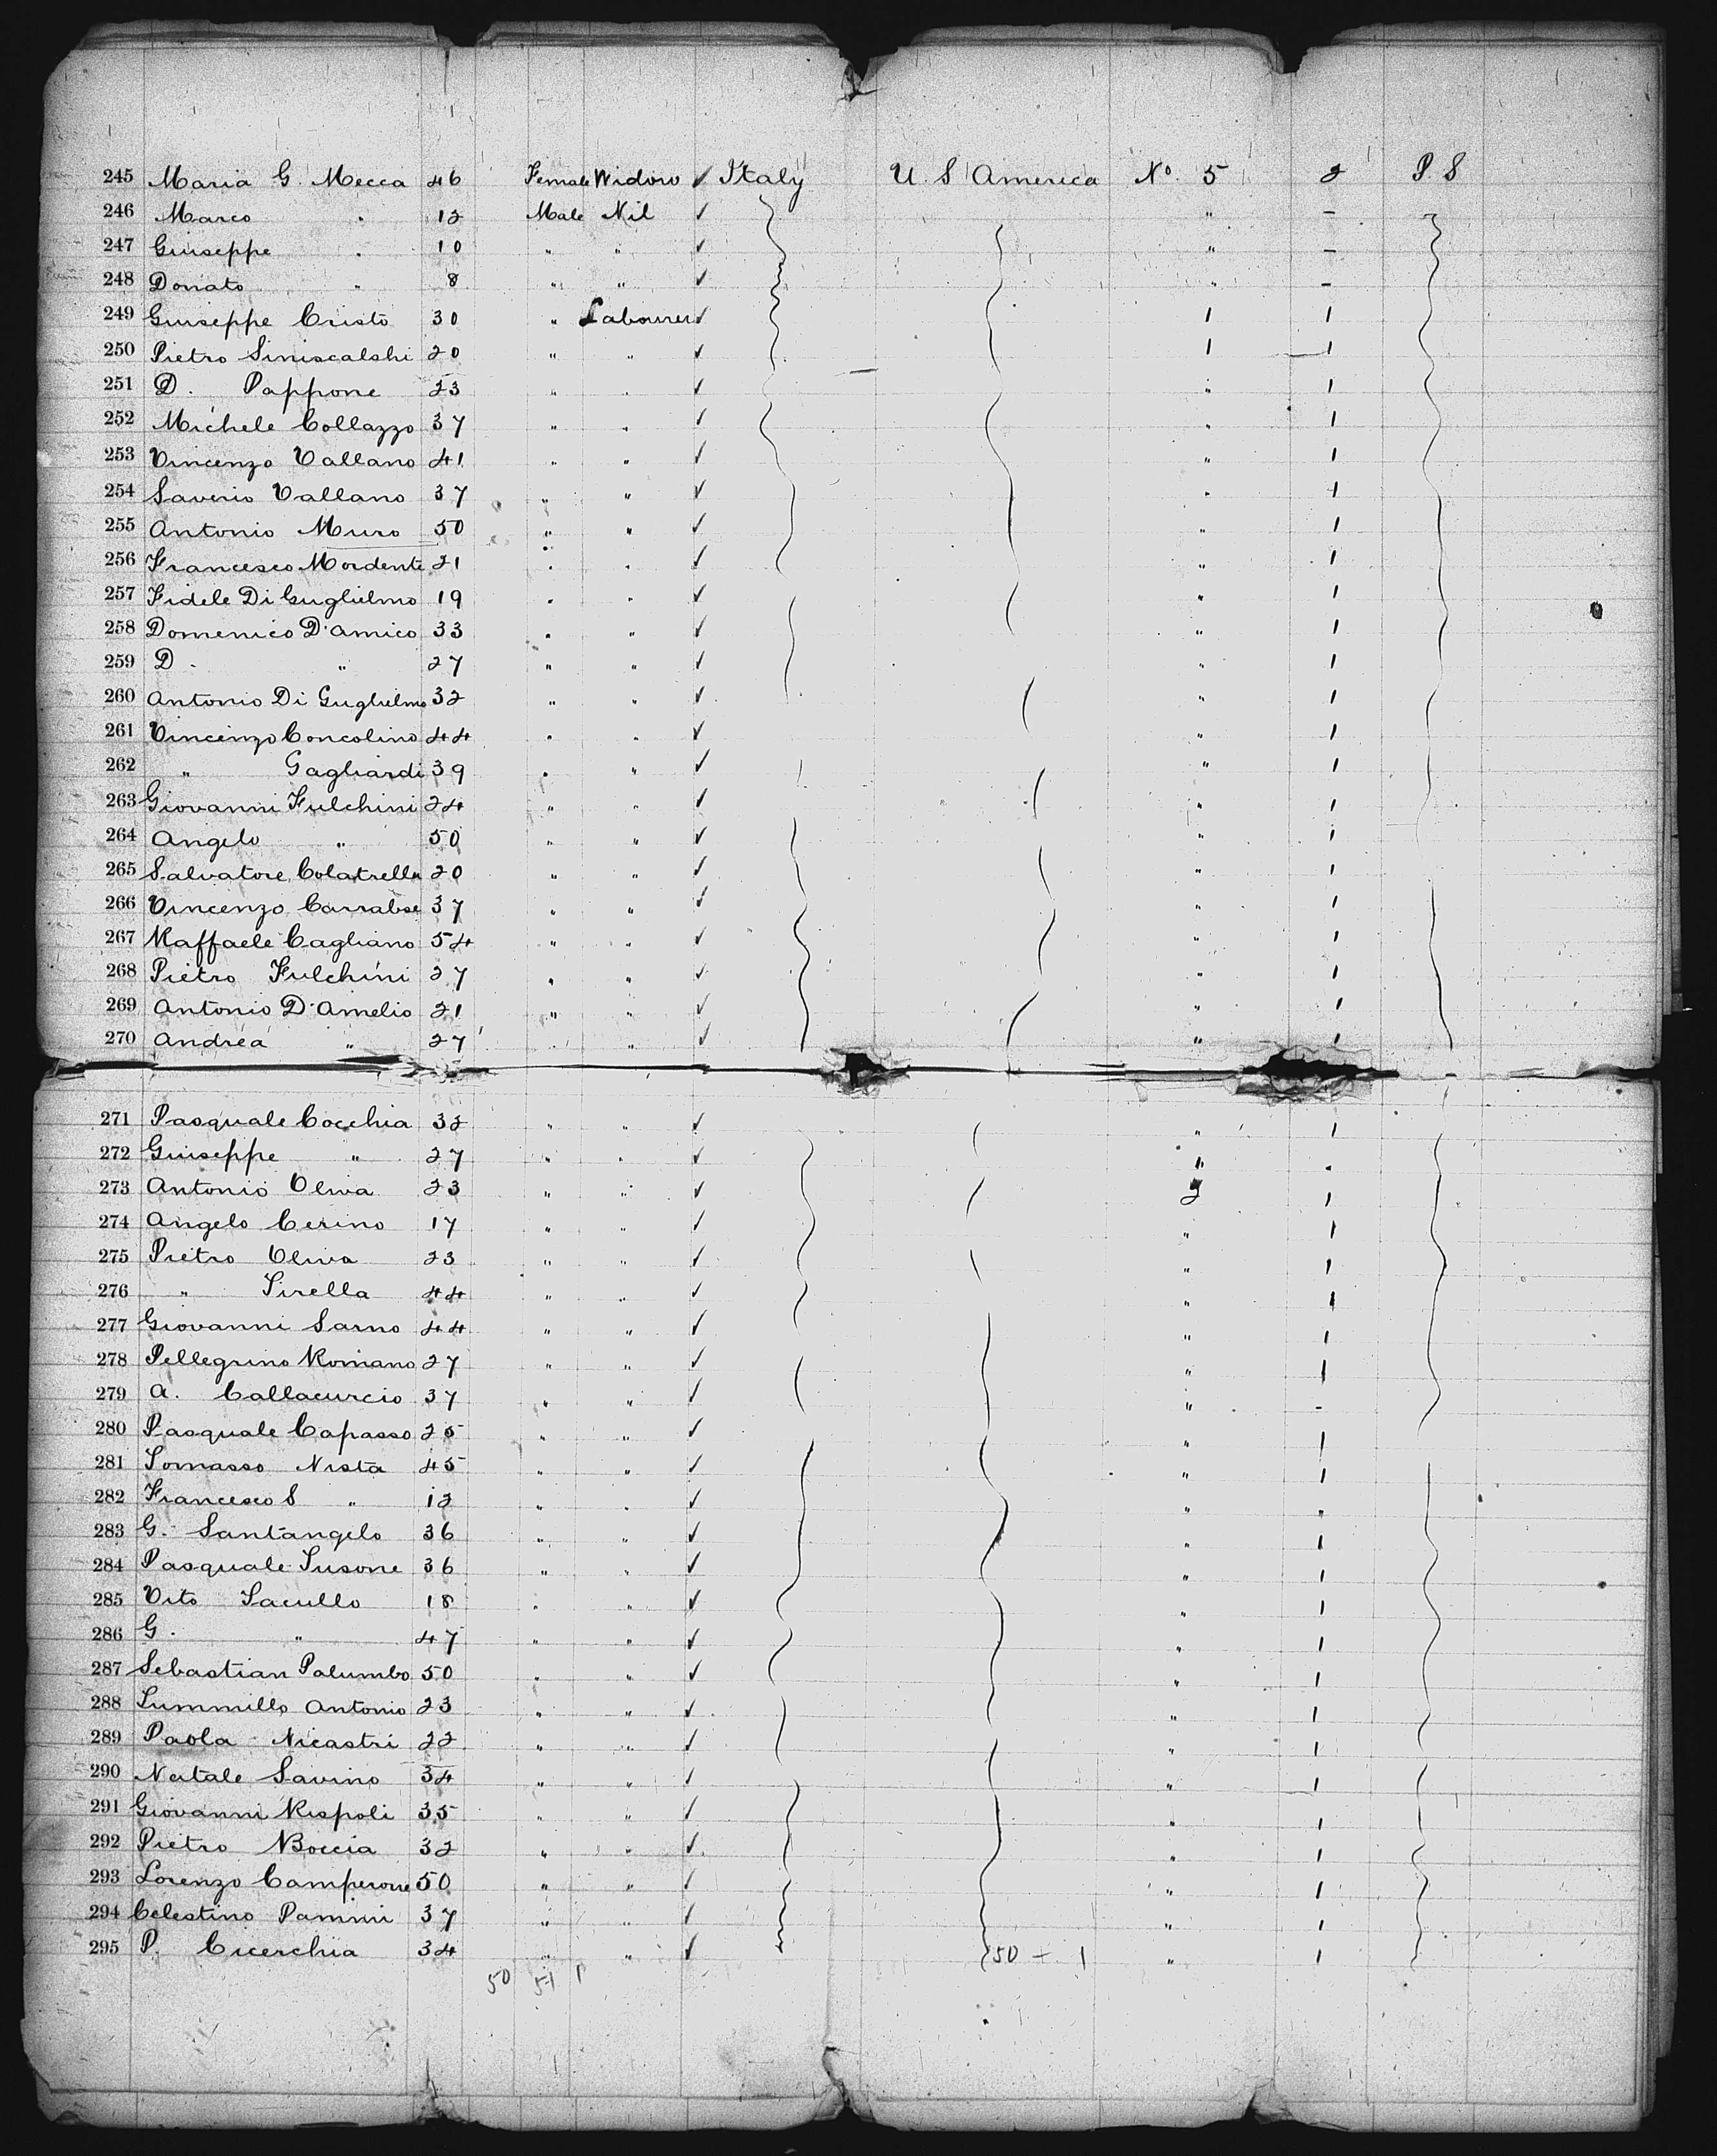 245 Maria G. Mecca 46 Female Widow ✓ Italy U. S America No. 5 2 P. S
246 Marco " 12 Male Nil ✓ " –
247 Giuseppe " 10 " " ✓ " –
248 Donato " 8 " " ✓ " –
249 Giuseppe Cristo 30 " Labourer ✓ 1 1
250 Pietro Siniscalshi 20 " " ✓ 1 1
251 D. Pappone 23 " " ✓ " 1
252 Michele Collazzo 37 " " ✓ " 1
253 Vincenzo Vallano 41 " " ✓ " 1
254 Saverio Vallano 37 " " ✓ " 1
255 Antonio Muro 50 " " ✓ " 1
256 Francesco Mordente 21 " " ✓ " 1
257 Fidele Di Guglielmo 19 " " ✓ " 1
258 Domenico D'Amico 33 " " ✓ " 1
259 D. " 27 " " ✓ " 1
260 Antonio Di Guglielmo 32 " " ✓ " 1
261 Vincenzo Concolino 44 " " ✓ " 1
262 " Gagliardi 39 " " ✓ " 1
263 Giovanni Fulchini 24 " " ✓ " 1
264 Angelo " 50 " " ✓ " 1
265 Salvatore Colatrella 20 " " ✓ " 1
266 Vincenzo Carrabse 37 " " ✓ " 1
267 Raffaele Cagliano 54 " " ✓ " 1
268 Pietro Fulchini 27 " " ✓ " 1
269 Antonio D'Amelio 21 " " ✓ " 1
270 Andrea " 27 " " ✓ " 1
271 Pasquale Cocchia 32 " " ✓ " 1
272 Giuseppe " 27 " " ✓ " "
273 Antonio Oliva 23 " " ✓ 2 1
274 Angelo Cerino 17 " " ✓ " 1
275 Pietro Oliva 23 " " ✓ " 1
276 " Sirella 44 " " ✓ " 1
277 Giovanni Sarno 44 " " ✓ " 1
278 Pellegrino Romano 27 " " ✓ " 1
279 A. Callacurcio 37 " " ✓ " -
280 Pasquale Capasso 25 " " ✓ " 1
281 Tomasso Nista 45 " " ✓ " 1
282 Francesco S " 12 " " ✓ " "
283 G. Santangelo 36 " " ✓ " 1
284 Pasquale Susone 36 " " ✓ " 1
285 Vito Iacullo 18 " " ✓ " 1
286 G. " 47 " " ✓ " 1
287 Sebastian Palumbo 50 " " ✓ " 1
288 Lummillo Antonio 23 " " ✓ " 1
289 Paola Nicastri 22 " " ✓ " 1
290 Natale Savino 34 " " ✓ " 1
291 Giovanni Rispoli 35 " " ✓ " 1
292 Pietro Boccia 32 " " ✓ " 1
293 Lorenzo Camperone 50 " " ✓ " 1
294 Celestino Pannini 37 " " ✓ " 1
295 P. Cicerchia 34 " " ✓ 50 – 1 " 1
50 51 1